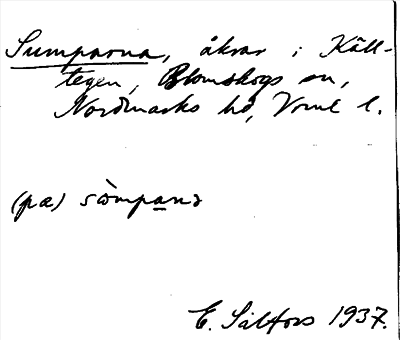 Sumparna, åkrar i Käll-
tegen, Blomskogs sn,
Nordmarks hd, Vrml l.
(pa) sòmpanɔ
E. Salfors 1937.